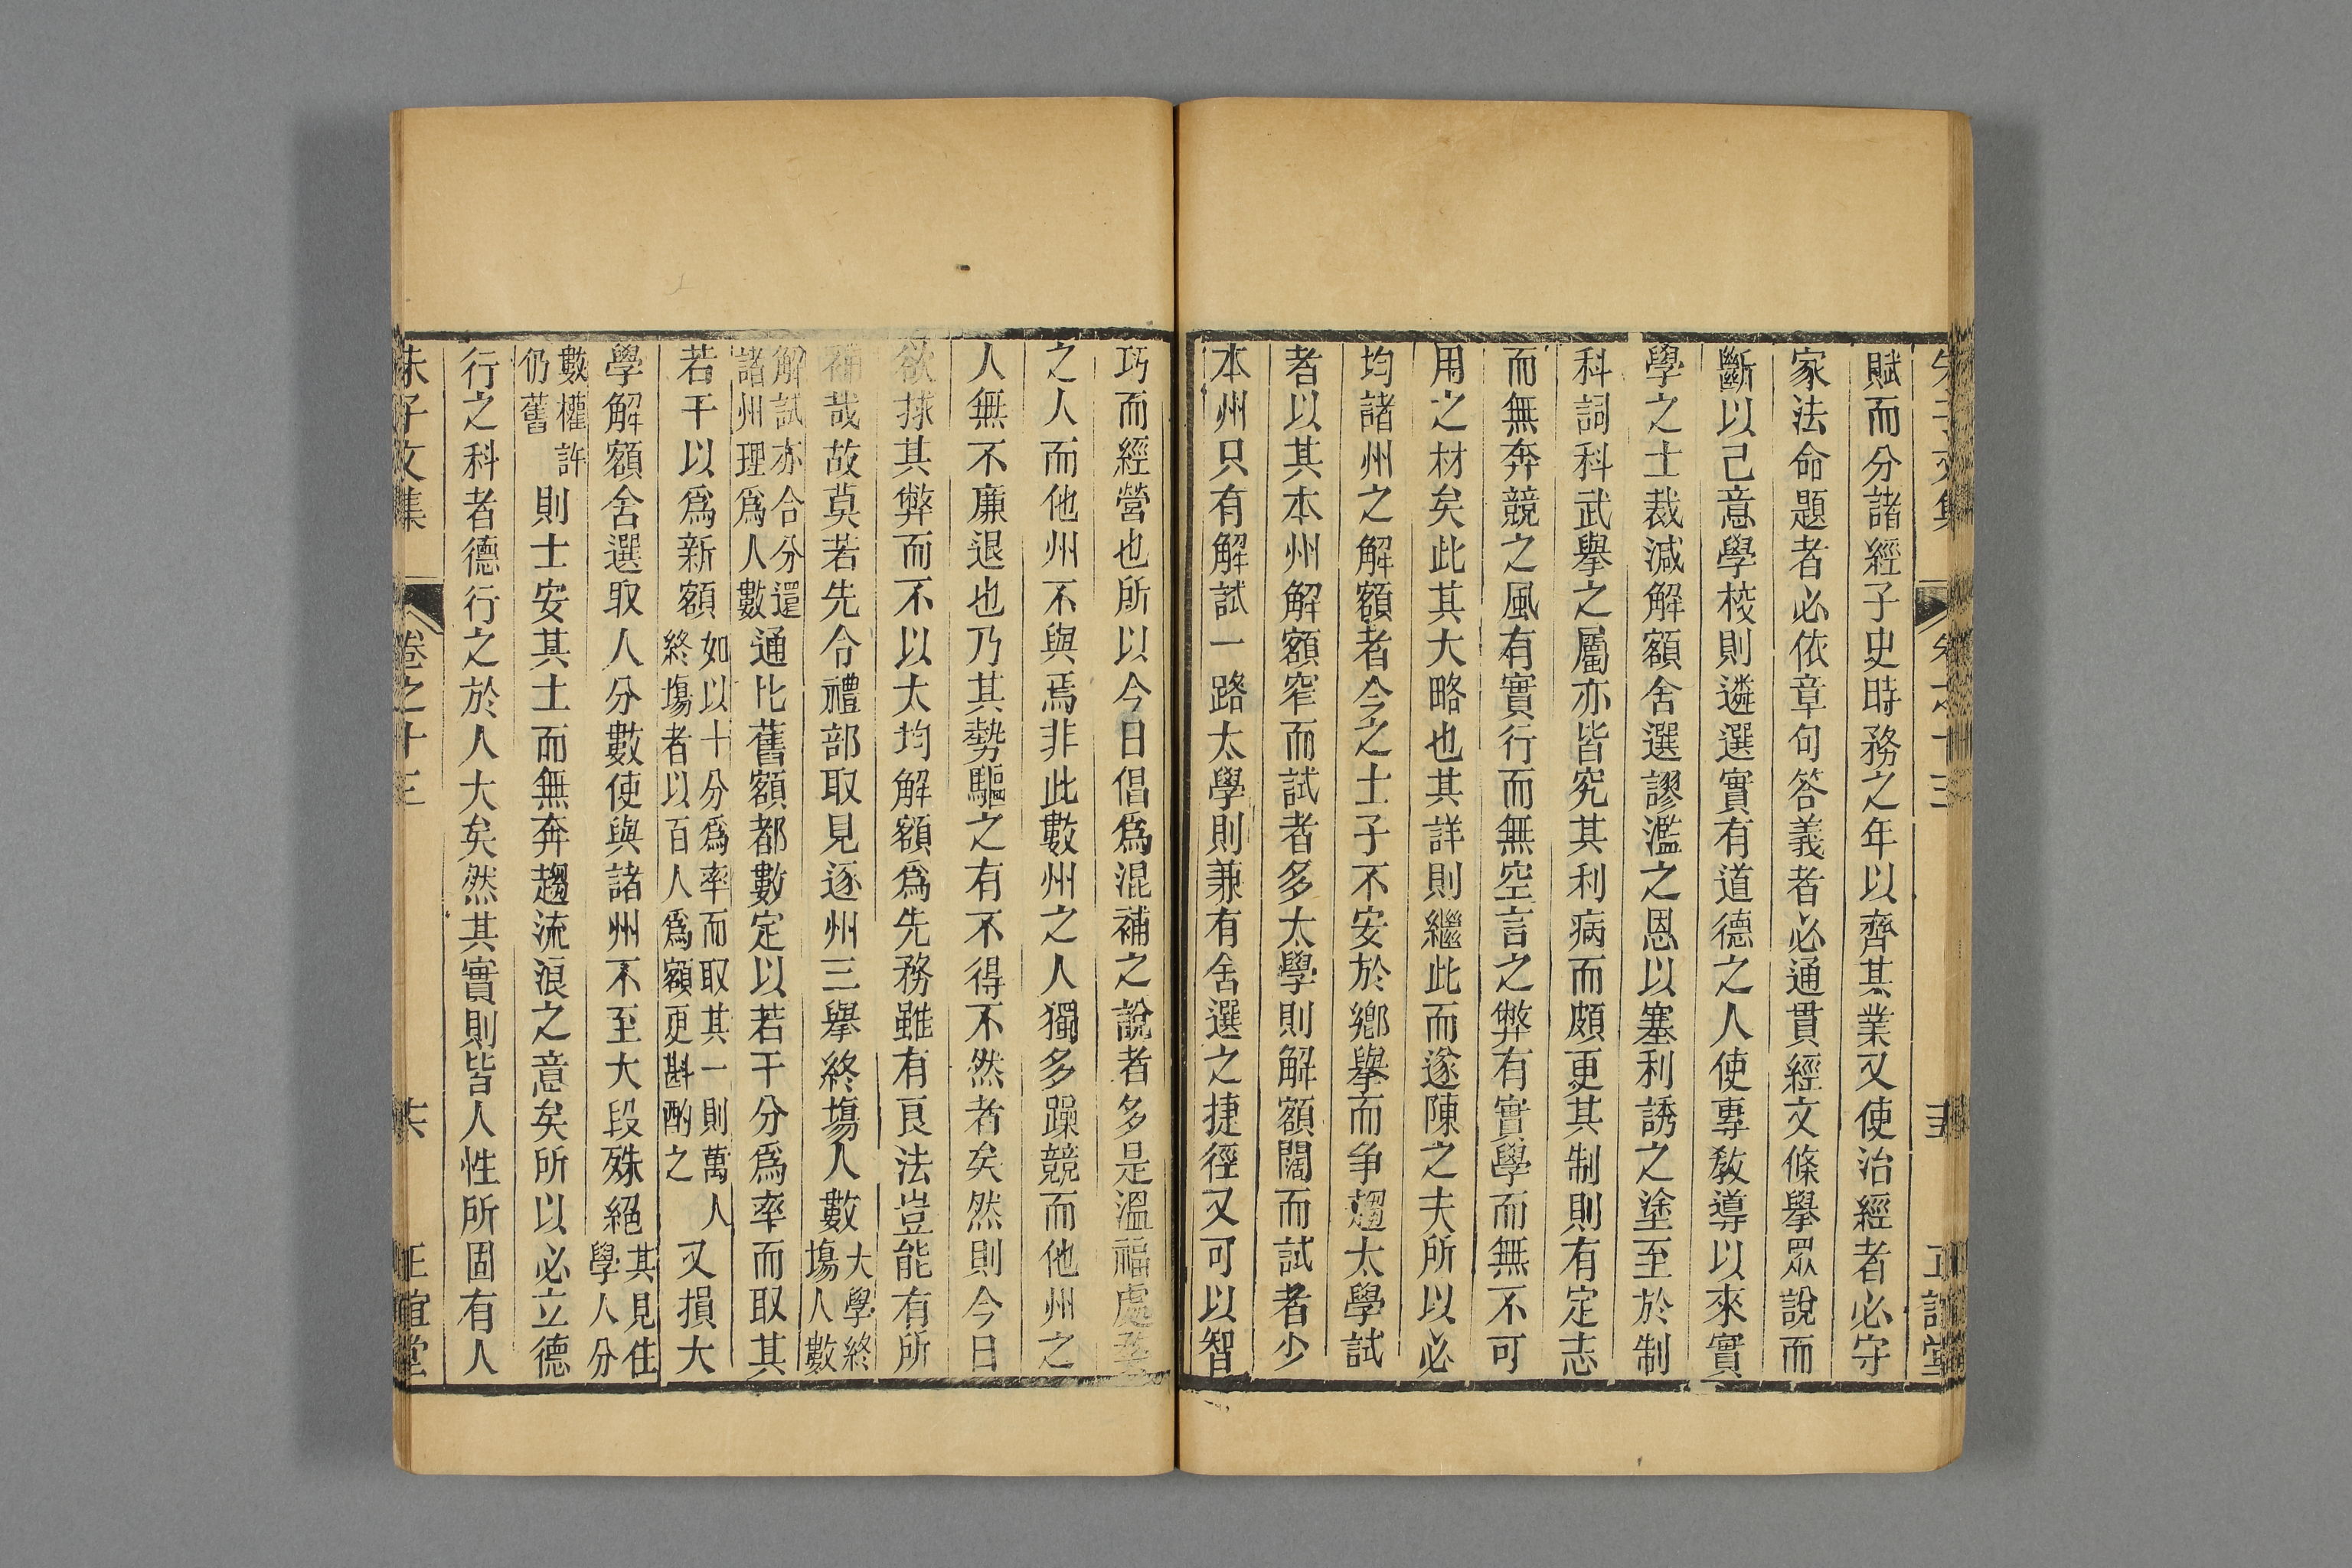 賦而分諸經子史時務之年以齊其業又使治經者必守
家法命題者必依章句答義者必通貫經文條舉眾說而
斷以己意學校則遴選實有道德之人使專教導以來實
學之士裁減解額舍選謬濫之恩以塞利誘之塗至於制
科詞科武舉之屬亦皆究其利病而頗更其制則有定志
而無奔競之風有實行而無空言之弊有實學而無不可
用之材矣此其大略也其詳則繼此而遂陳之夫所以必
均諸州之解額者今之士子不安於鄉舉而争趨太學試
者以其本州解額窄而試者多太學則解額闊而試者少
本州只有解試一路太學則兼有舍選之捷徑又可以智
巧而經營也所以今日倡爲混補之說者多是溫福處婺
之人而他州不與焉非此數州之人獨多躁競而他州之
人無不廉退也乃其勢驅之有不得不然者矣然則今日
欲捄其弊而不以大均解額爲先務雖有良法豈能有所
補哉故莫若先令禮部取見逐州三舉終塲人數
大學終
塲人數
解試亦合分還
諸州理爲人數
通比舊額都數定以若干分爲率而取其
若干以爲新額
如以十分爲率而取其一則萬人
終塲者以百人爲額更斟酌之
又損大
學解額舍選取人分數使與諸州不至大段殊絕
其見住
學人分
數權許
仍舊
則士安其土而無奔趨流浪之意矣所以必立德
行之科者德行之於人大矣然其實則皆人性所固有人
朱子文集
卷之十三
共
正誼堂